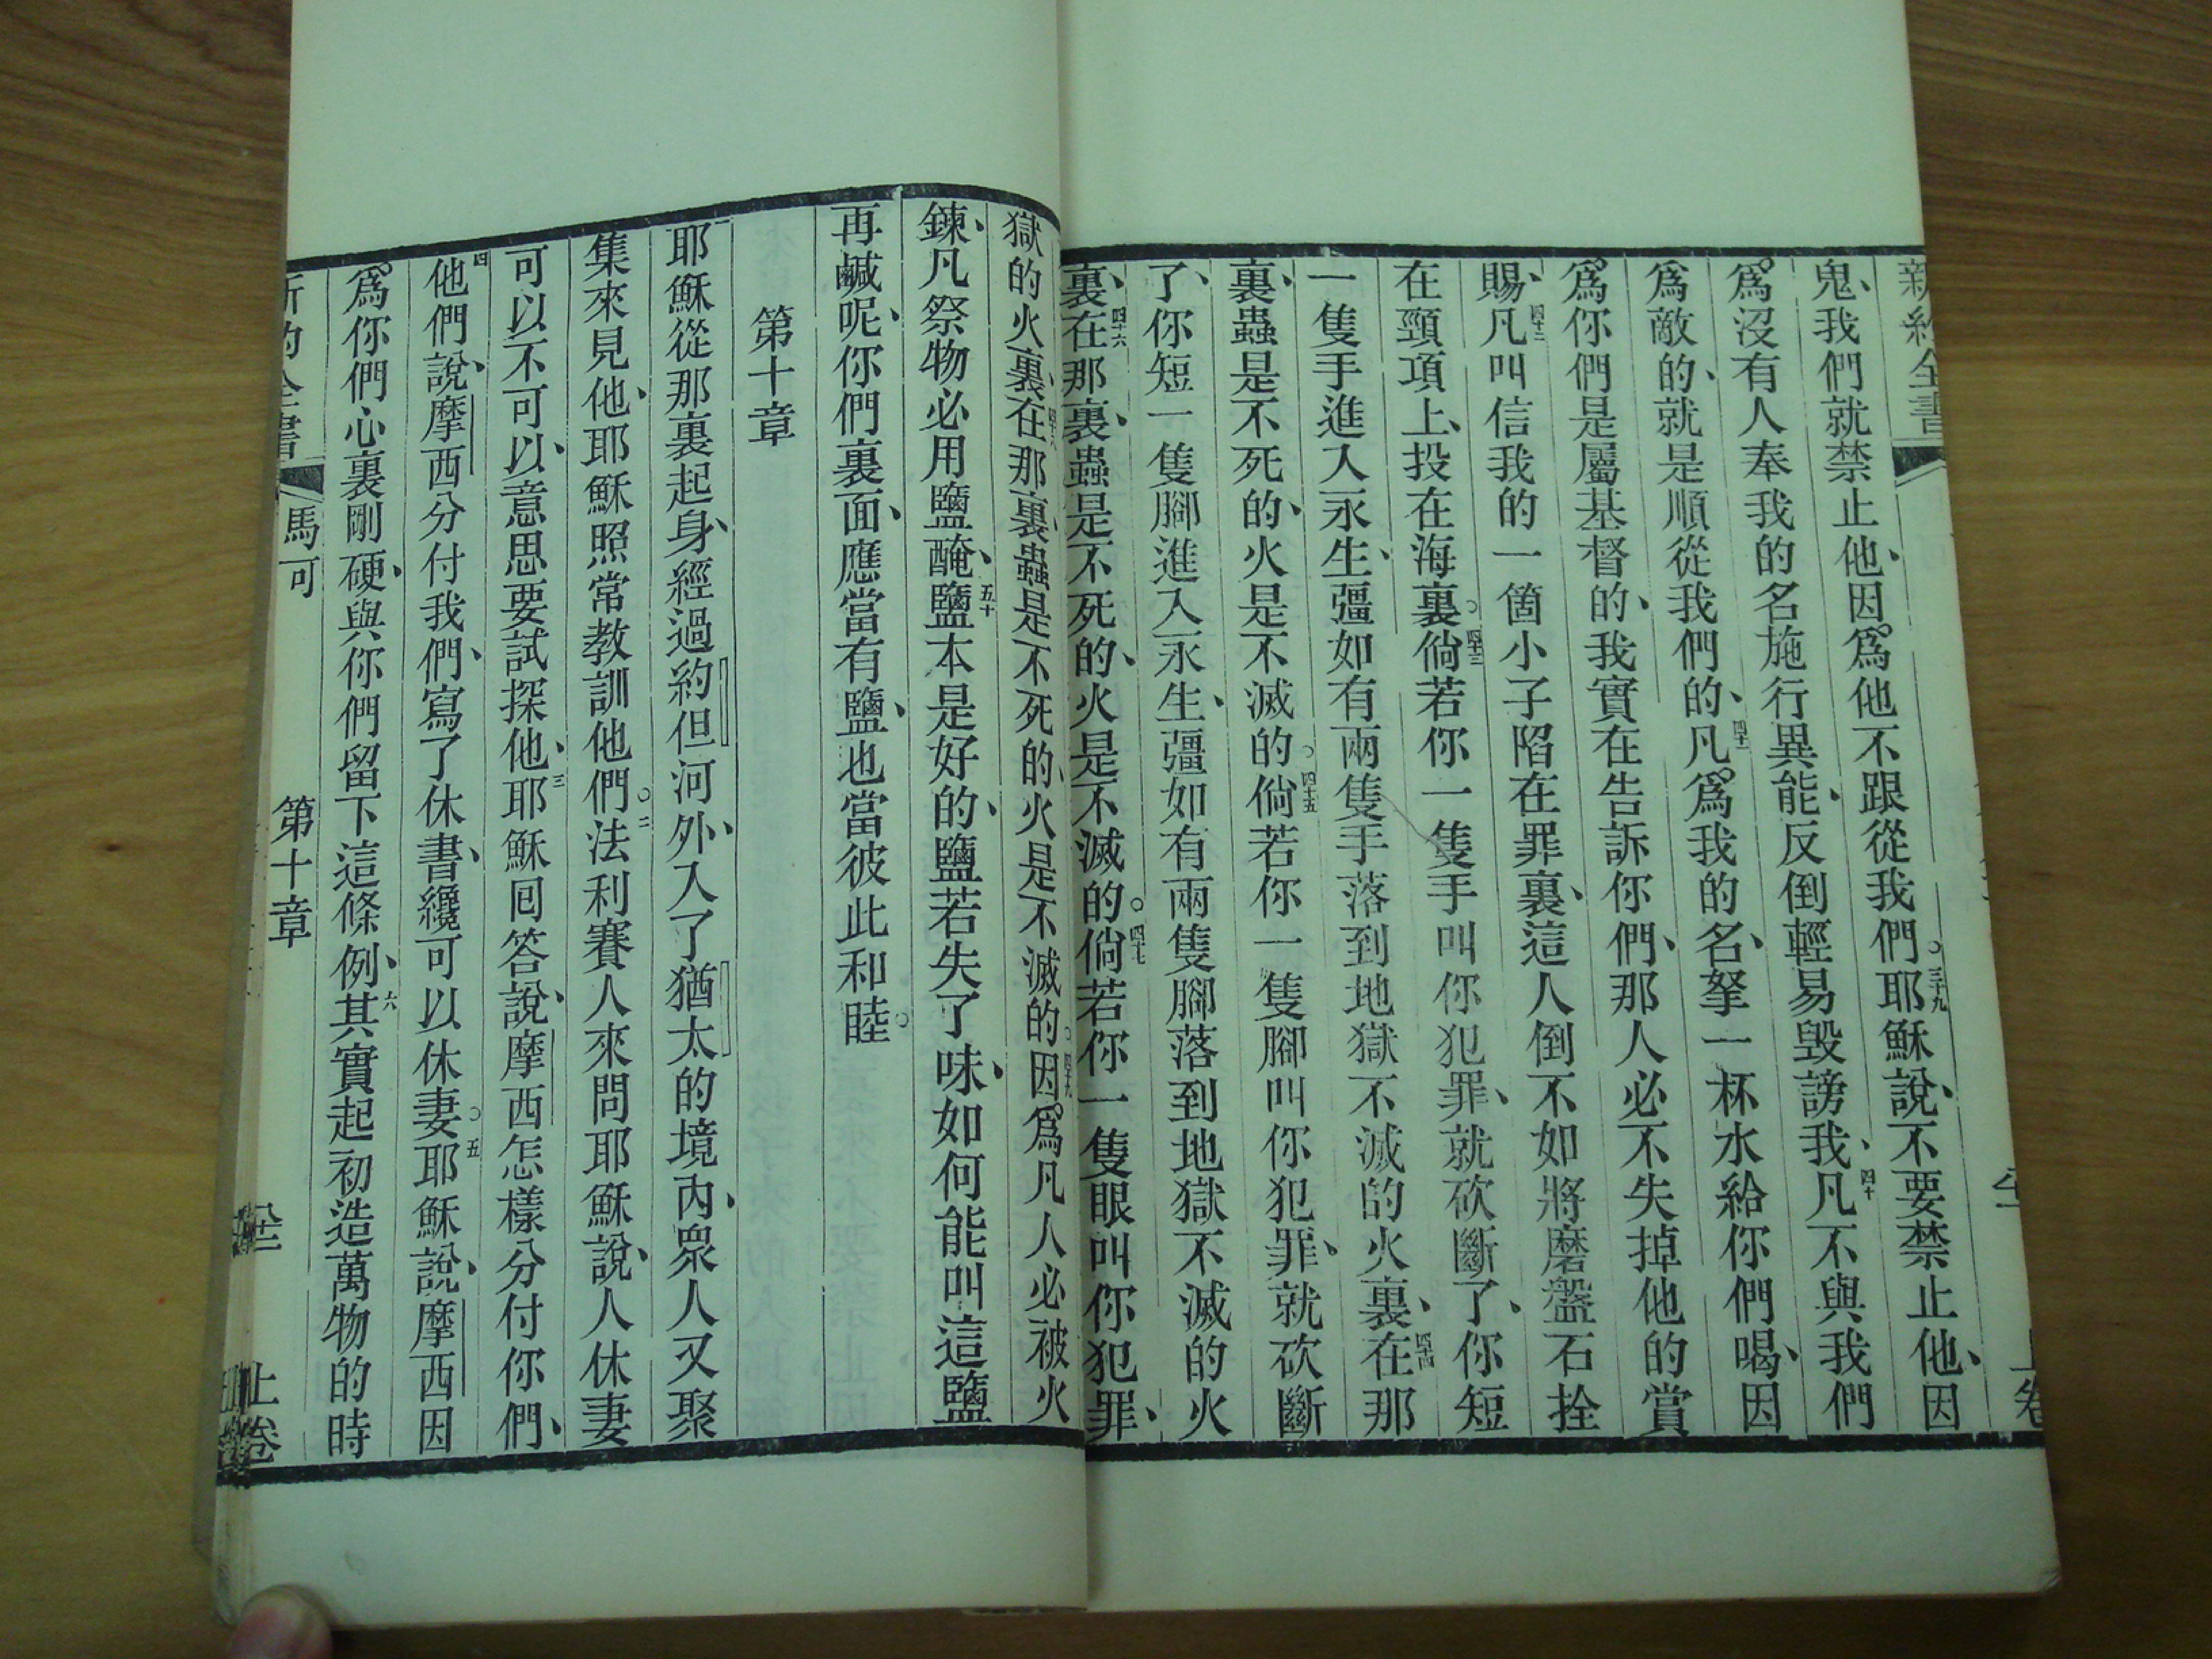 新約全書
鬼、我們就禁止他、因爲他不跟從我們。三十九耶穌說、不要禁止他、因
爲沒有人奉我的名施行異能、反倒輕易毀謗我、四十凡不與我們
爲敵的、就是順從我們的、四十一凡爲我的名、拏一杯水給你們喝、因
爲你們是屬基督的、我實在告訴你們、那人必不失掉他的賞
賜、四十二凡叫信我的一箇小子陷在罪裏、這人倒不如將磨盤石拴
在頸項上、投在海裏。四十三倘若你一隻手叫你犯罪、就砍斷了、你短
一隻手進入永生、彊如有兩隻手落到地獄不滅的火裏、四十四在那
裏、蟲是不死的、火是不滅的。四十五倘若你一隻腳叫你犯罪、就砍斷
了、你短一隻腳進入永生、彊如有兩隻腳落到地獄不滅的火
裏、四十六在那裏、蟲是不死的、火是不滅的。四十七倘若你一隻眼叫你犯罪、
獄的火裏、四十八在那裏、蟲是不死的、火是不滅的。四十九因爲凡人必被火
鍊、凡祭物必用鹽醃、五十鹽本是好的、鹽若失了味、如何能叫這鹽
再鹹呢、你們裏面、應當有鹽、也當彼此和睦。
第十章
一耶穌從那裏起身、經過約但河外、入了猶太的境內、眾人又聚
集來見他、耶穌照常教訓他們。二法利賽人來問耶穌說、人休妻
可以不可以、意思要試探他、三耶穌囘答說、摩西怎樣分付你們、
四他們說、摩西分付我們、寫了休書、纔可以休妻。五耶穌說、摩西因
爲你們心裏剛硬、與你們留下這條例、六其實起初造萬物的時
新約全書 馬可 第十章 上卷